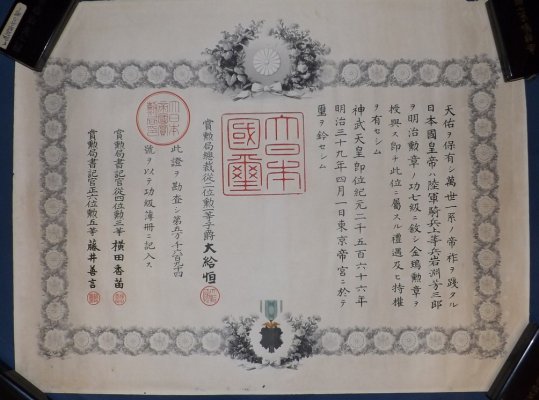 天佑ヲ保有シ萬世一系ノ帝祚ヲ踐タル
日本國皇帝ハ陸軍騎兵上等兵岩淵芳三郎
ヲ明治勲章ノ功七級ニ敘シ金鵄勲章ヲ
授與ス即チ此位ニ屬スル禮遇及ヒ特權
ヲ有セシム
神武天皇即位紀元二千五百六十六年
明治三十九年四月一日東京帝宮ニ於テ
璽ヲ鈐セシム
大日本
國璽
賞勲局總裁從二位勲一等子爵 大給恒
此證ヲ勘査シ第五万千七百九十四
號ヲ以テ功級簿冊ニ記入ス
賞勲局書記官從四位勲三等 横田香苗
賞勲局書記官正六位勲五等 藤井善言